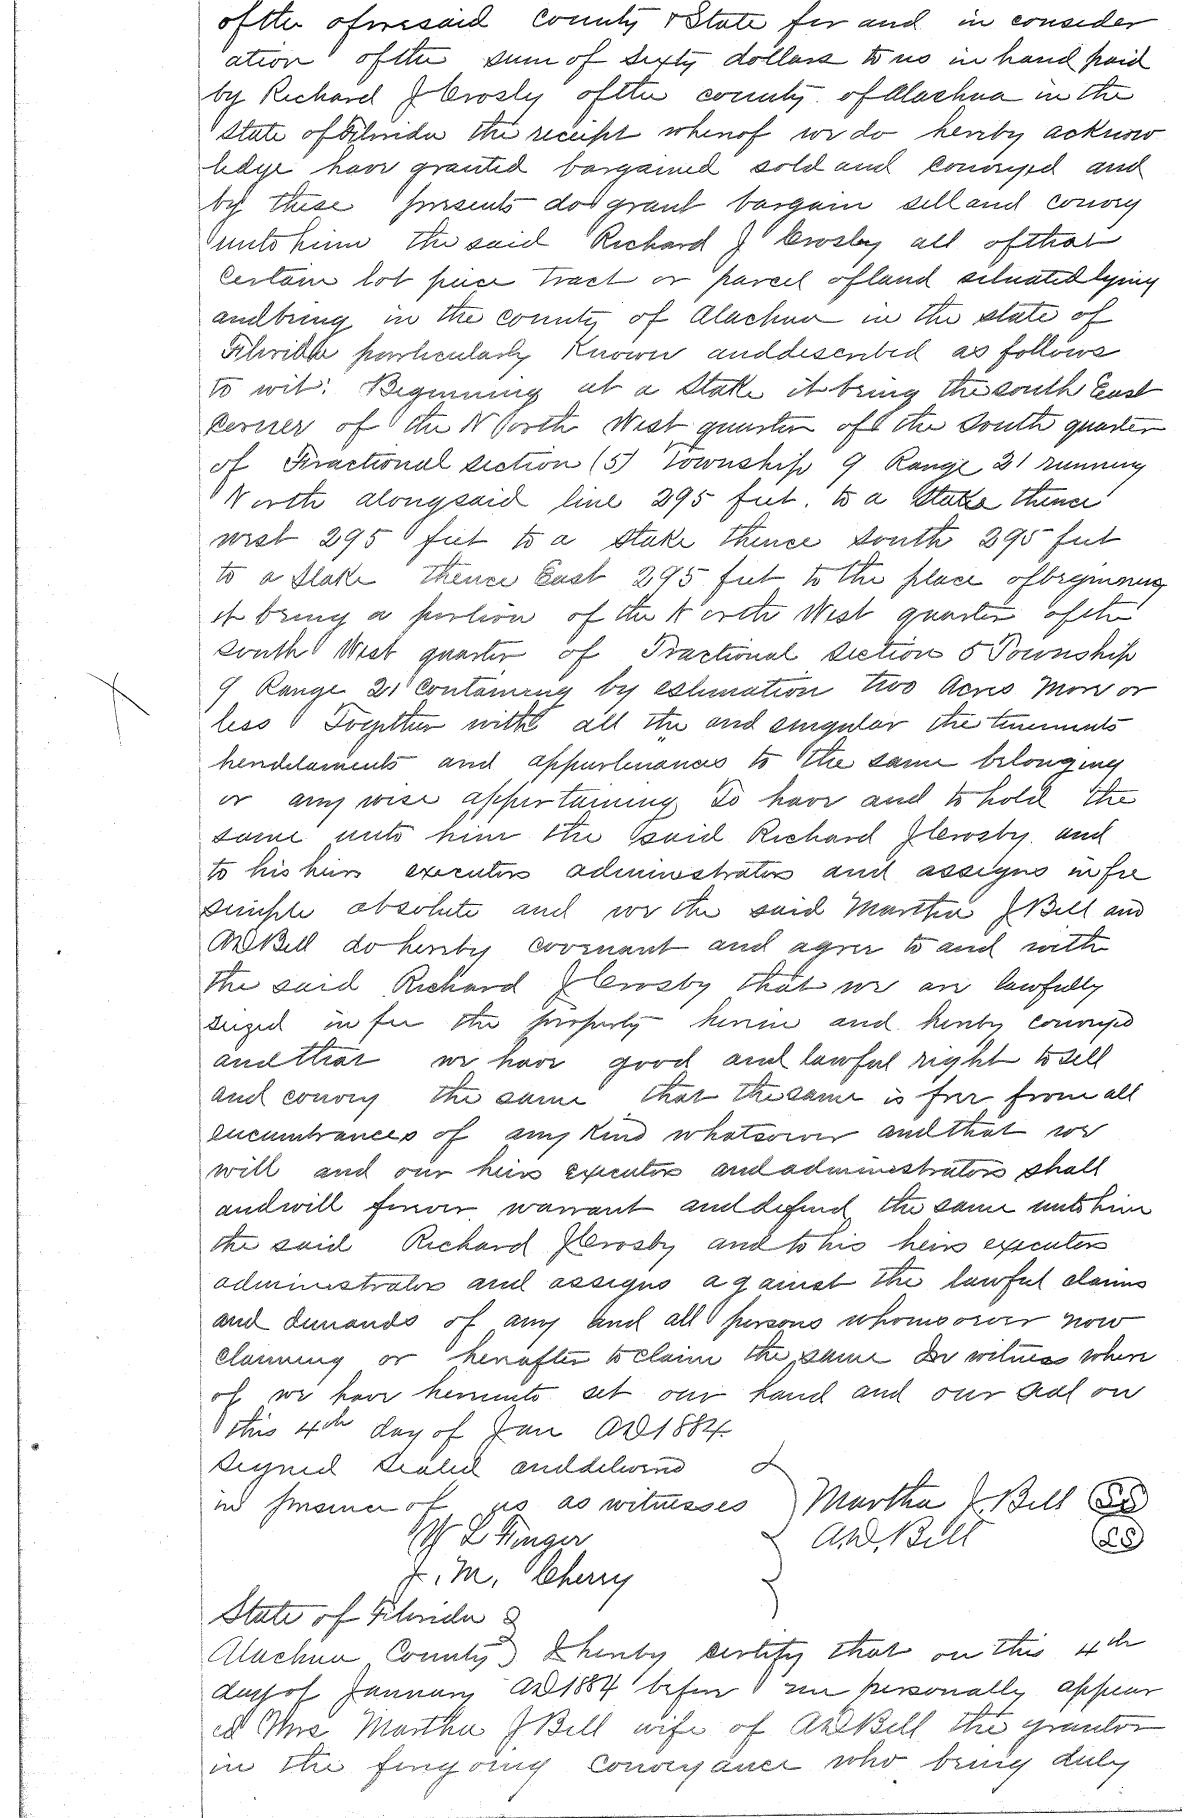 of the aforesaid County & State for and in consider
ation of the sum of sixty dollars to us in hand paid
by Richard J Crosby of the county of Alachua in the
State of Florida the receipt whereof we do hereby acknow
ledge have granted bargained sold and conveyed and
by these presents do grant bargain sell and convey
unto him the said Richard J Crosby all of that
Certain lot peice tract or parcel of land situated lying
and being in the county of Alachua in the state of
Florida particularly Known and described as follows
to wit: Beginning at a Stake it being the south East
corner of the North West quarter of the South quarter
of Fractional section (5) Township 9 Range 21 running
North along said line 295 feet. to a Stake thence
west 295 feet to a stake thence south 295 feet
to a Stake thence East 295 feet to the place of beginning
it being a portion of the North West quarter of the
south West quarter of Fractional section 5 Township
9 Range 21 containing by estimation two Acres More or
less Together with all the and singular the tenements
hendetaments and appurtenances to the same belonging
or any wise appertaining To have and to hold the
same unto him the said Richard J Crosby and
to his heirs executors administrators and assigns in fee
simple absolute and we the said Martha J Bell and
A D Bell do hereby covenant and agree to and with
the said Richard J Crosby that we are lawfully
seized in fee the property herein and hereby conveyed
and that we have good and lawful right to sell
and convey the same that the same is free from all
encumbrances of any Kind whatsoever and that we
will and our heirs executors and administrators shall
and will forever warrant and defend the same unto him
the said Richard J Crosby and to his heirs executors
administrators and assigns against the lawful claims
and demands of any and all persons whomsoever now
claiming or hereafter to claim the same In witness where
of we have hereunto set our hand and our seal on
this 4th day of Jan AD 1884.
Signed Sealed and delivered
in presence of us as witnesses Martha J. Bell LS
W L Finger A.D. Bell LS
J. M. Cherry
State of Florida
Alachua County I hereby certify that on this 4th
day of January AD 1884 before me personally appear
ed Mrs Martha J Bell wife of A D Bell the grantor
in the foregoing conveyance who being duly